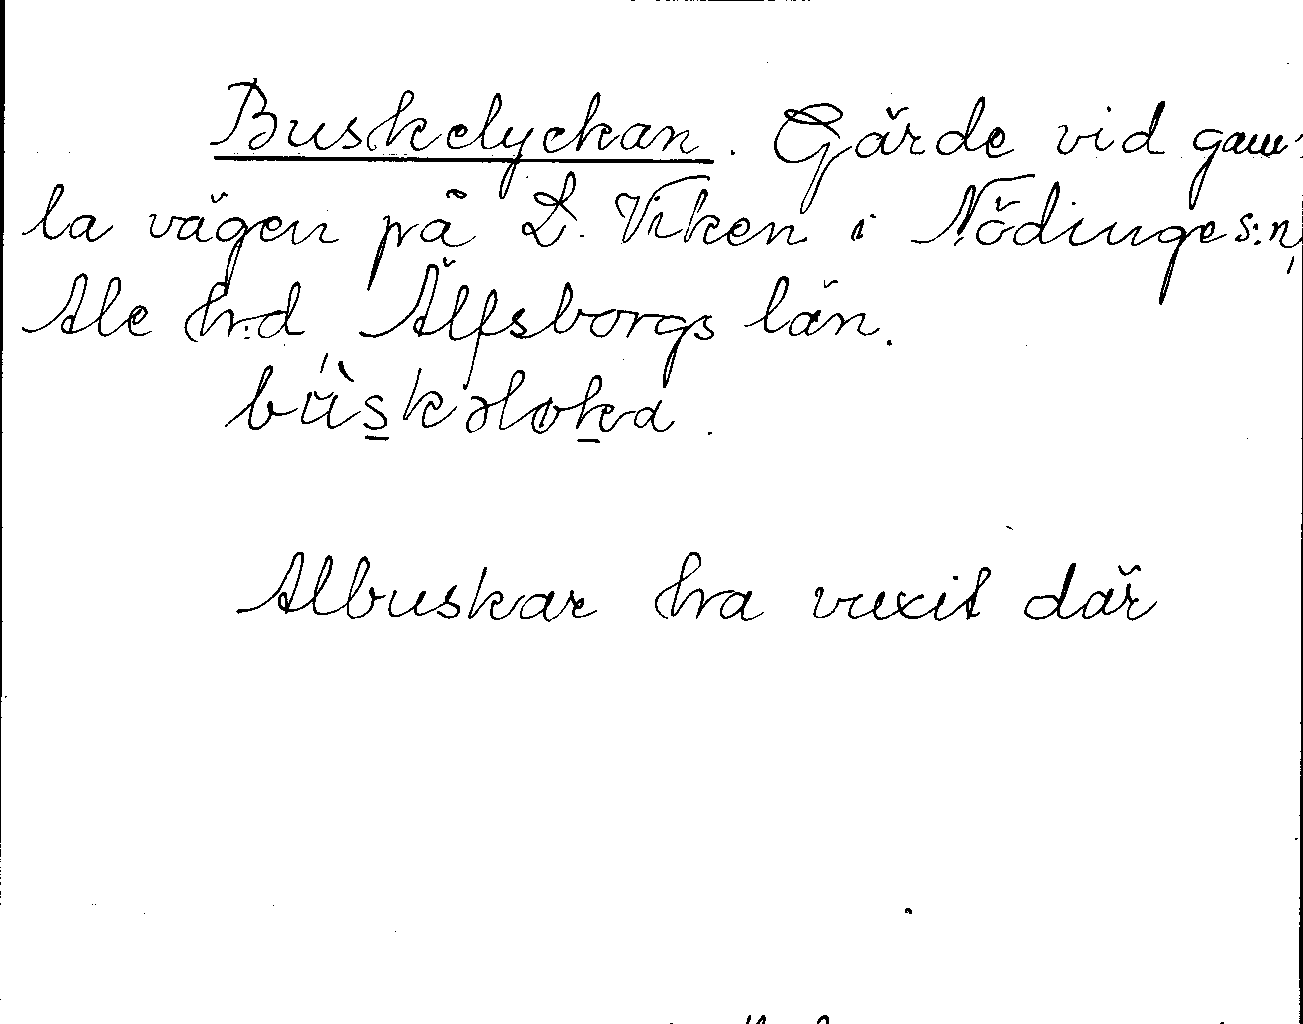 Buskelyckan. Gärde vid gam-
la vägen på L. Viken i Nödinge s:n,
Ale h:d Älfsborgs län.
Albuskar ha vuxit där